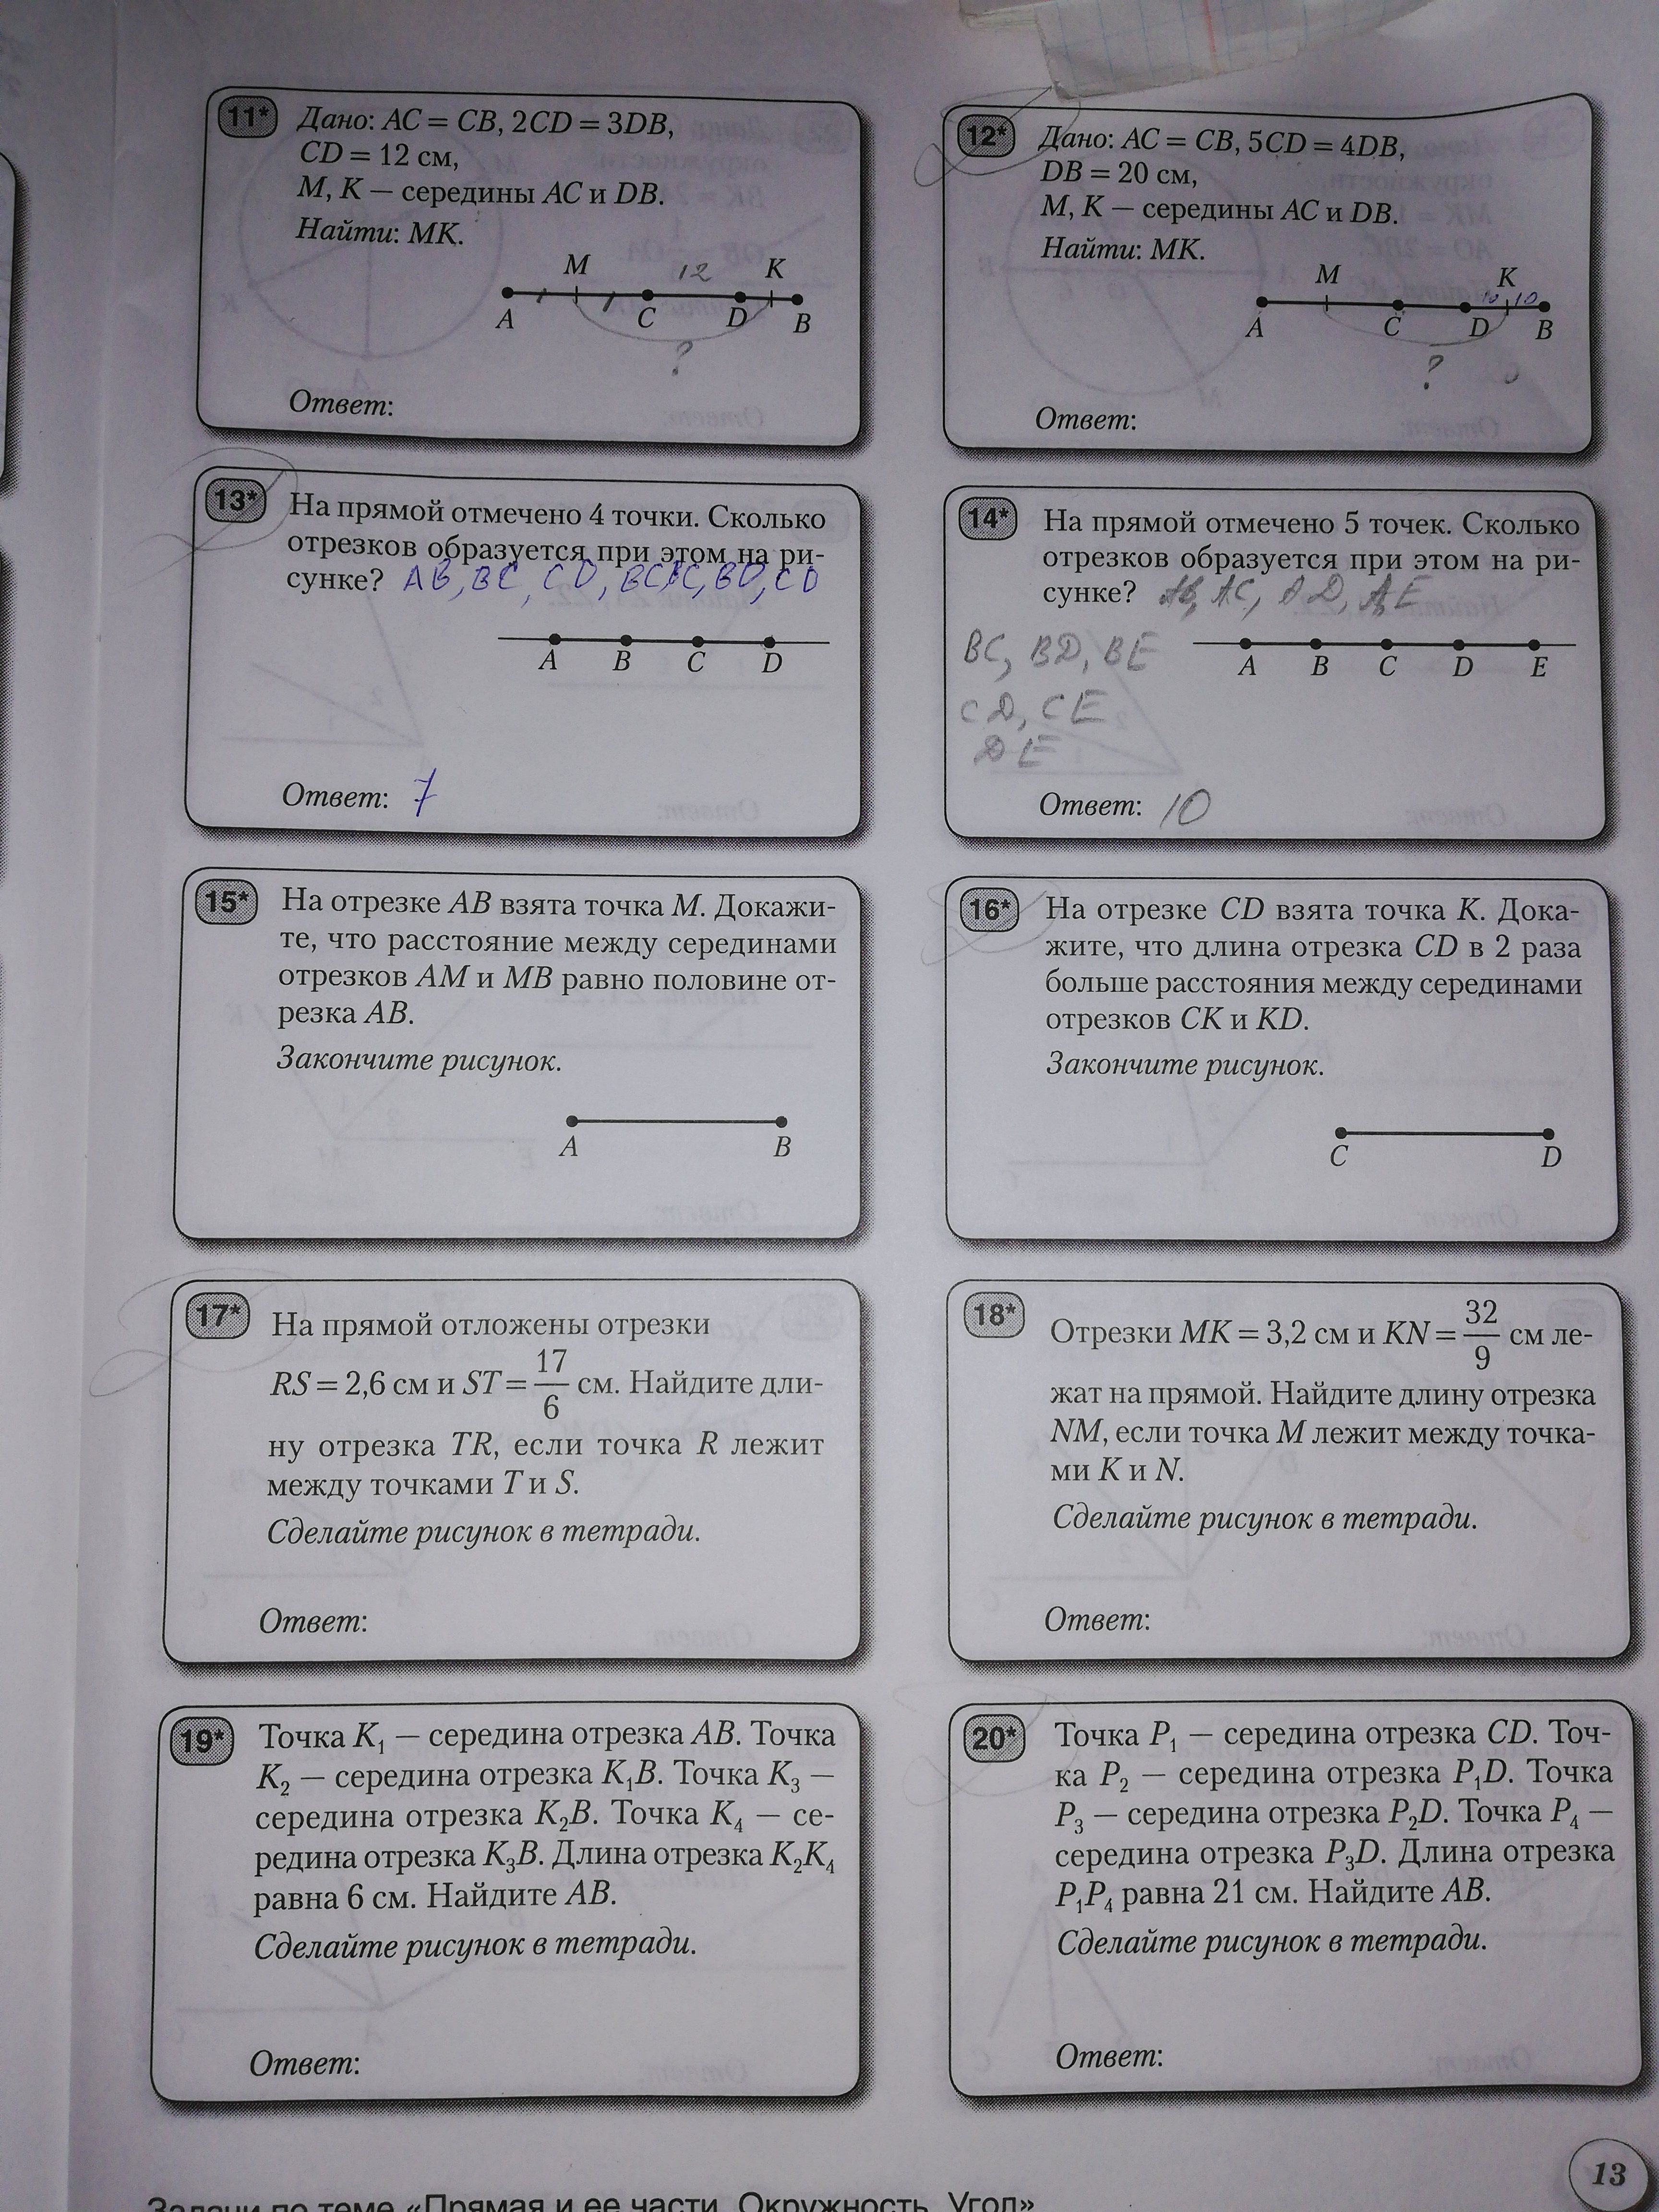 11*
Дано: AC = CB, 2CD = 3DB,
CD = 12 см,
M, K — середины AC и DB.
Найти: MK.
M 12 K
A C D B
?
Ответ:
12*
Дано: AC = CB, 5CD = 4DB,
DB = 20 см,
M, K — середины AC и DB.
Найти: MK.
M K
10 10
A C D B
?
Ответ:
13*
На прямой отмечено 4 точки. Сколько
отрезков образуется при этом на ри-
сунке? AB, BC, CD, BD, CD
A B C D
Ответ: 7
14*
На прямой отмечено 5 точек. Сколько
отрезков образуется при этом на ри-
сунке? AB, AC, AD, AE
BC, BD, BE
A B C D E
CD, CE
DE
Ответ: 10
15*
На отрезке AB взята точка M. Докажи-
те, что расстояние между серединами
отрезков AM и MB равно половине от-
резка AB.
Закончите рисунок.
A B
16*
На отрезке CD взята точка K. Дока-
жите, что длина отрезка CD в 2 раза
больше расстояния между серединами
отрезков CK и KD.
Закончите рисунок.
C D
17*
На прямой отложены отрезки
RS = 2,6 см и ST = 17/6 см. Найдите дли-
ну отрезка TR, если точка R лежит
между точками T и S.
Сделайте рисунок в тетради.
Ответ:
18*
Отрезки MK = 3,2 см и KN = 32/9 см ле-
жат на прямой. Найдите длину отрезка
NM, если точка M лежит между точка-
ми K и N.
Сделайте рисунок в тетради.
Ответ:
19*
Точка K₁ — середина отрезка AB. Точка
K₂ — середина отрезка K₁B. Точка K₃ —
середина отрезка K₂B. Точка K₄ — се-
редина отрезка K₃B. Длина отрезка K₂K₄
равна 6 см. Найдите AB.
Сделайте рисунок в тетради.
Ответ:
20*
Точка P₁ — середина отрезка CD. Точ-
ка P₂ — середина отрезка P₁D. Точка
P₃ — середина отрезка P₂D. Точка P₄ —
середина отрезка P₃D. Длина отрезка
P₁P₄ равна 21 см. Найдите AB.
Сделайте рисунок в тетради.
Ответ:
13
Задачи по теме «Прямая и ее части. Окружность. Угол»